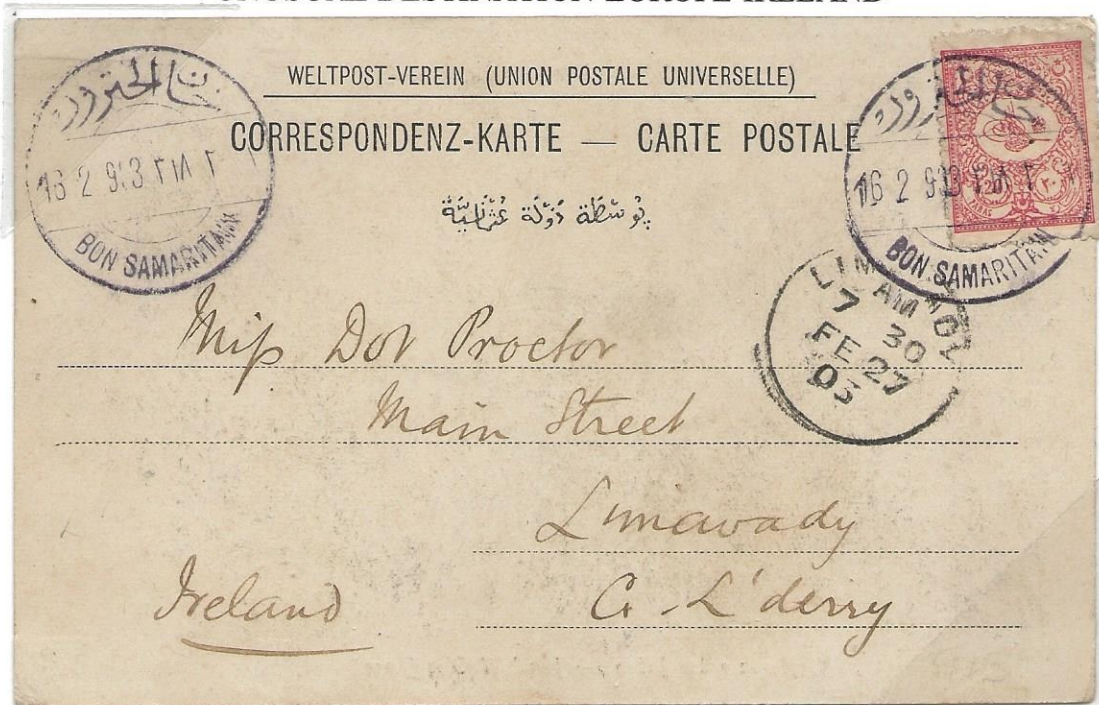 WELTPOST-VEREIN (UNION POSTALE UNIVERSELLE)
CORRESPONDENZ-KARTE — CARTE POSTALE
پوسطة دولة عثمانية
16 2 903 ٢ ١٨ ٢
BON SAMARITAIN
16 2 903 ٢ ١٨ ٢
BON SAMARITAIN
20
٢٠
7 30
FE 27
03
Miss Dot Proctor
Main Street
Limavady
Ireland
Co. L'derry